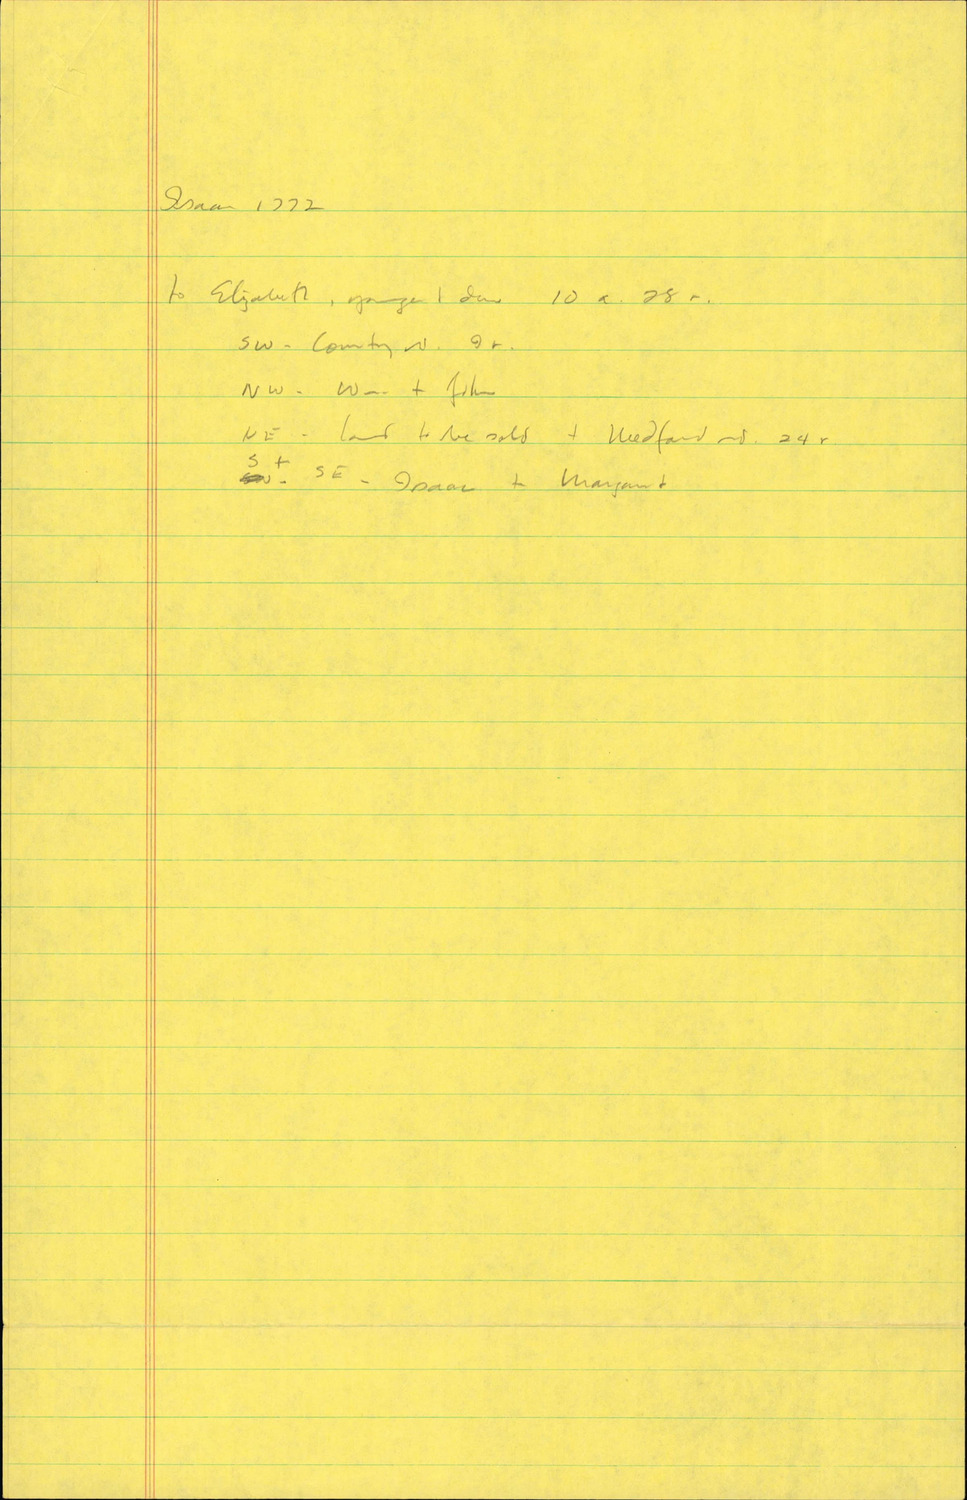 Isaac 1772
to Elizabeth, youngest dau 10 a. 28 r.
SW - Country rd. 9 r.
NW - Wm + John
NE - land to be sold + Medford rd. 24 r
S + SE - Isaac + Margaret